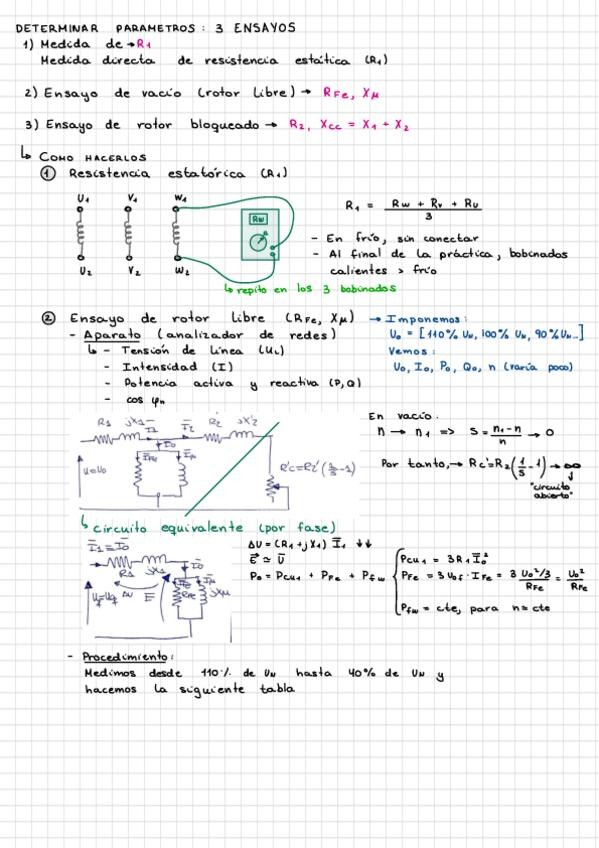 DETERMINAR PARAMETROS: 3 ENSAYOS
1) Medida de → R1
Medida directa de resistencia estática (R1)
2) Ensayo de vacío (rotor Libre) → RFe, Xμ
3) Ensayo de rotor bloqueado → R2, Xcc = X1 + X2
↳ COMO HACERLOS
① Resistencia estatórica (R1)
U1 V1 W1
Rw
U2 V2 W2
↳ repito en los 3 bobinados
R1 = (Rw + Rv + Ru) / 3
- En frío, sin conectar
- Al final de la práctica, bobinados
calientes > frío
② Ensayo de rotor libre (RFe, Xμ)
- Aparato (analizador de redes)
↳ - Tensión de Línea (UL)
- Intensidad (I)
- Potencia activa y reactiva (P,Q)
- cos φn
→ Imponemos:
U0 = [110% UN, 100% UN, 90% UN...]
Vemos:
U0, I0, P0, Q0, n (varía poco)
R1 jX1 I1 I2 R2 jX'2
I0
IFe Iμ
U=U0
R'c=R2'(1/S-1)
En vacío:
n → n1 => S = (n1-n)/n → 0
Por tanto, → Rc'=R2(1/S-1) → ∞
"circuito
abierto"
↳ circuito equivalente (por fase)
I1=I0
R1 jX1 I0
ΔU E
RFe Iμ jXμ
ΔU = (R1+jX1) I1 ↓↓
E ≃ U
P0 = Pcu1 + PFe + Pfw
Pcu1 = 3R1 I0²
PFe = 3 U0f · IFe = 3 (U0²/3)/RFe = U0²/RFe
Pfw = cte, para n = cte
- Procedimiento:
Medimos desde 110% de UN hasta 40% de UN y
hacemos la siguiente tabla